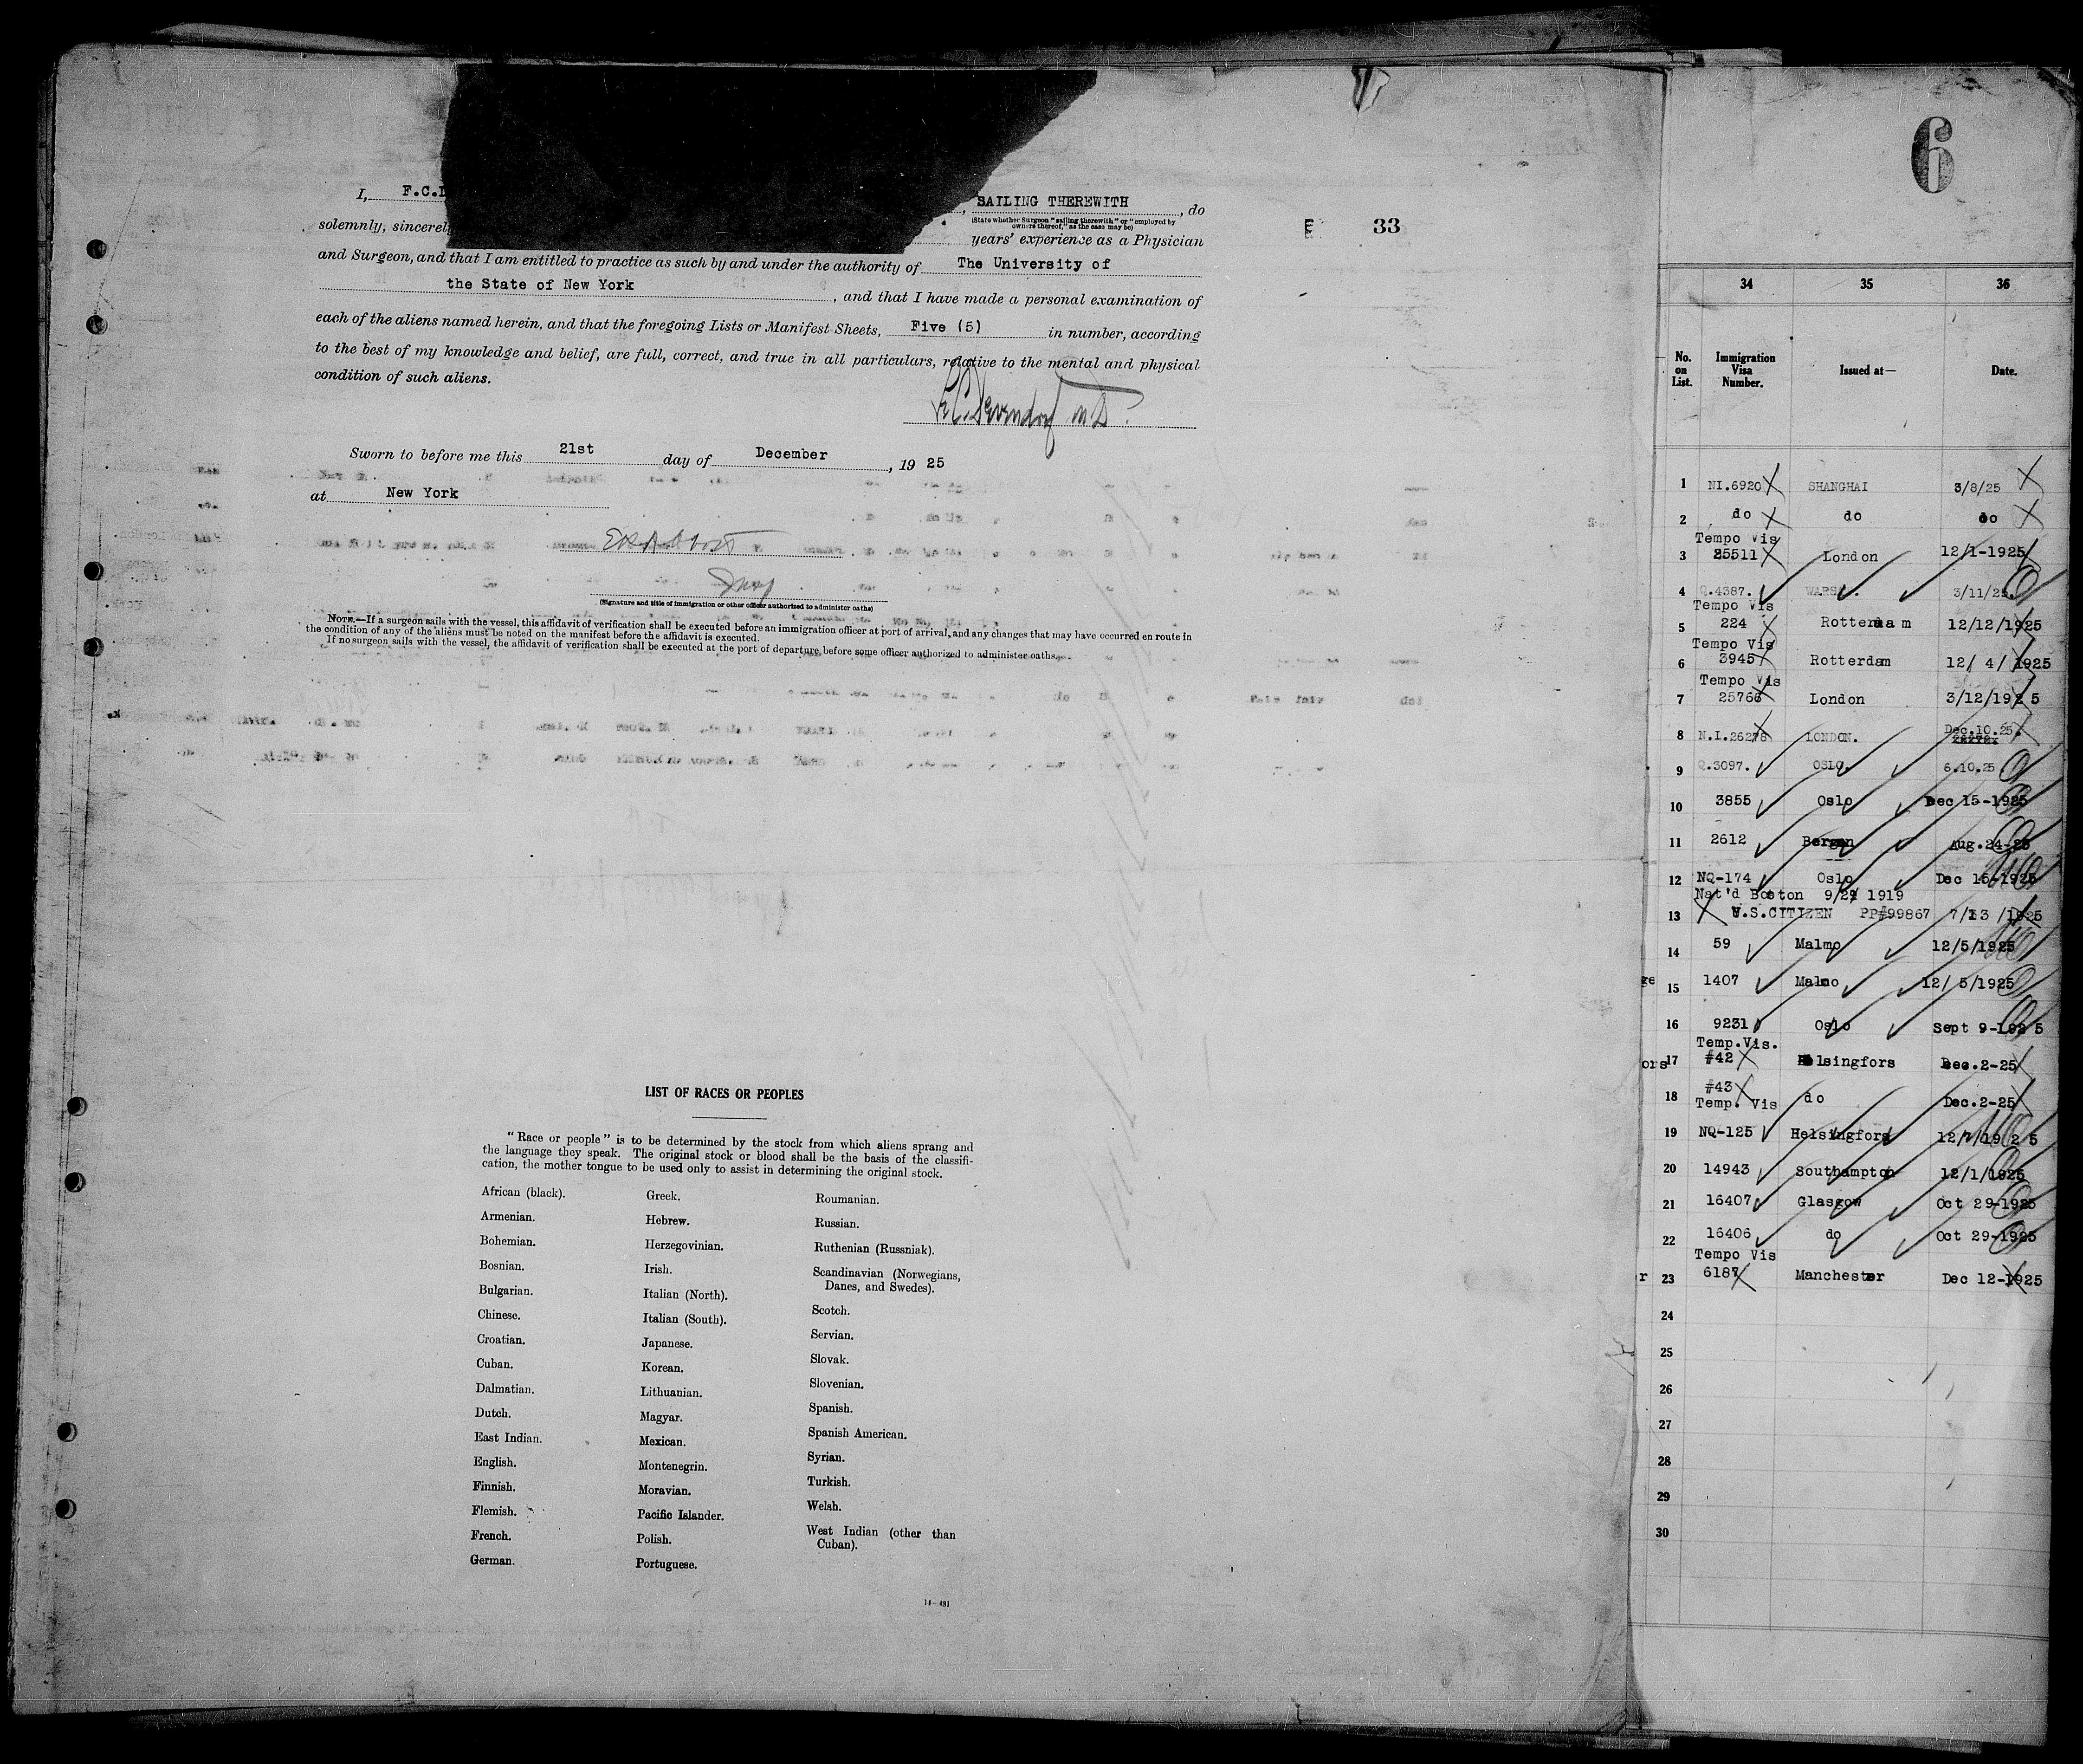 I, F.C.
SAILING THEREWITH, do
(State whether Surgeon "sailing therewith" or "employed by
owners thereof," as the case may be)
solemnly, sincerely
years' experience as a Physician
and Surgeon, and that I am entitled to practice as such by and under the authority of The University of
the State of New York, and that I have made a personal examination of
each of the aliens named herein, and that the foregoing Lists or Manifest Sheets, Five (5) in number, according
to the best of my knowledge and belief, are full, correct, and true in all particulars, relative to the mental and physical
condition of such aliens.
M D.
Sworn to before me this 21st day of December, 19 25
at New York
(Signature and title of immigration or other officer authorized to administer oaths)
NOTE.—If a surgeon sails with the vessel, this affidavit of verification shall be executed before an immigration officer at port of arrival, and any changes that may have occurred en route in
the condition of any of the aliens must be noted on the manifest before the affidavit is executed.
If no surgeon sails with the vessel, the affidavit of verification shall be executed at the port of departure before some officer authorized to administer oaths.
E 33
LIST OF RACES OR PEOPLES
"Race or people" is to be determined by the stock from which aliens sprang and
the language they speak. The original stock or blood shall be the basis of the classifi-
cation, the mother tongue to be used only to assist in determining the original stock.
African (black).
Armenian.
Bohemian.
Bosnian.
Bulgarian.
Chinese.
Croatian.
Cuban.
Dalmatian.
Dutch.
East Indian.
English.
Finnish.
Flemish.
French.
German.
Greek.
Hebrew.
Herzegovinian.
Irish.
Italian (North).
Italian (South).
Japanese.
Korean.
Lithuanian.
Magyar.
Mexican.
Montenegrin.
Moravian.
Pacific Islander.
Polish.
Portuguese.
Roumanian.
Russian.
Ruthenian (Russniak).
Scandinavian (Norwegians,
Danes, and Swedes).
Scotch.
Servian.
Slovak.
Slovenian.
Spanish.
Spanish American.
Syrian.
Turkish.
Welsh.
West Indian (other than
Cuban).
14—431
6
34 35 36
No.
on
List.
Immigration
Visa
Number.
Issued at—
Date.
1 NI.6920 SHANGHAI 3/8/25
2 do do do
Tempo Vis
3 25511 London 12/1-1925
4 Q.4387. 3/11/25.
Tempo Vis
5 224 Rotterdam 12/12/1925
Tempo Vis
6 3945 Rotterdam 12/ 4/ 1925
Tempo Vis
7 25766 London 3/12/192 5
8 N.I.26278 LONDON. Dec.10.25.
9 Q.3097. OSLO. 6.10.25
10 3855 Oslo Dec 15-1925
11 2612 Bergen Aug.24-25
12 NQ-174 Oslo Dec 15-1925
Nat'd Boston 1919
13 U.S.CITIZEN PP#99867 /1925
14 59 Malmo 12/5/1925
ge 15 1407 Malmo 12/ 5/1925
16 9231 Oslo Sept 9-192 5
Temp.Vis.
ors 17 #42 Helsingfors Dec.2-25
18 #43 do Dec.2-25
Temp. Vis
19 NQ-125 Helsingfors 12/7/19 2 5
20 14943 Southampton 12/1/1925
21 16407 Glasgow Oct 29-1925
22 16406 do Oct 29-1925
Tempo Vis
r 23 6187 Manchester Dec 12-1925
24
25
26
27
28
29
30